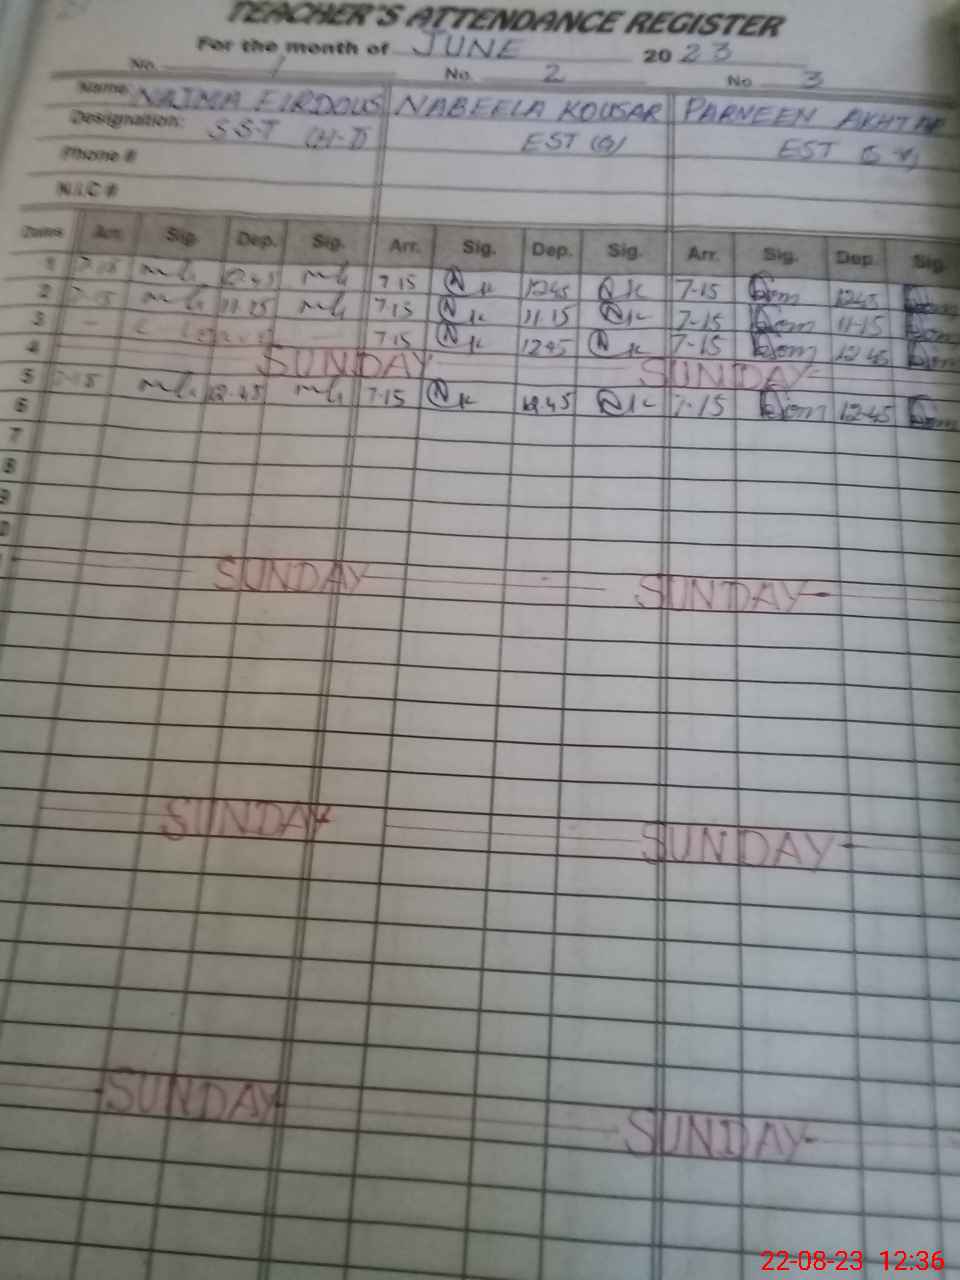 TEACHER'S ATTENDANCE REGISTER
For the month of JUNE 2023
No. 1 No. 2 No. 3
Name: NAJMA FIRDOUS NABEELA KOUSAR PARNEEN AKHTAR
Designation: S.S.T (H-T) EST (G) EST
Phone #
N.I.C #
Dates Arr. Sig. Dep. Sig. Arr. Sig. Dep. Sig. Arr. Sig. Dep. Sig.
1 7-15 12.45 7.15 1245 7-15 1245
2 7-15 11.15 7.15 11.15 7-15 11-15
3 7.15 1245 7-15 12 45
4 SUNDAY SUNDAY
5 7-15 12.45 7.15 12.45 7-15 12-45
6
7
8
9
SUNDAY SUNDAY
SUNDAY SUNDAY
SUNDAY SUNDAY
22-08-23 12:36